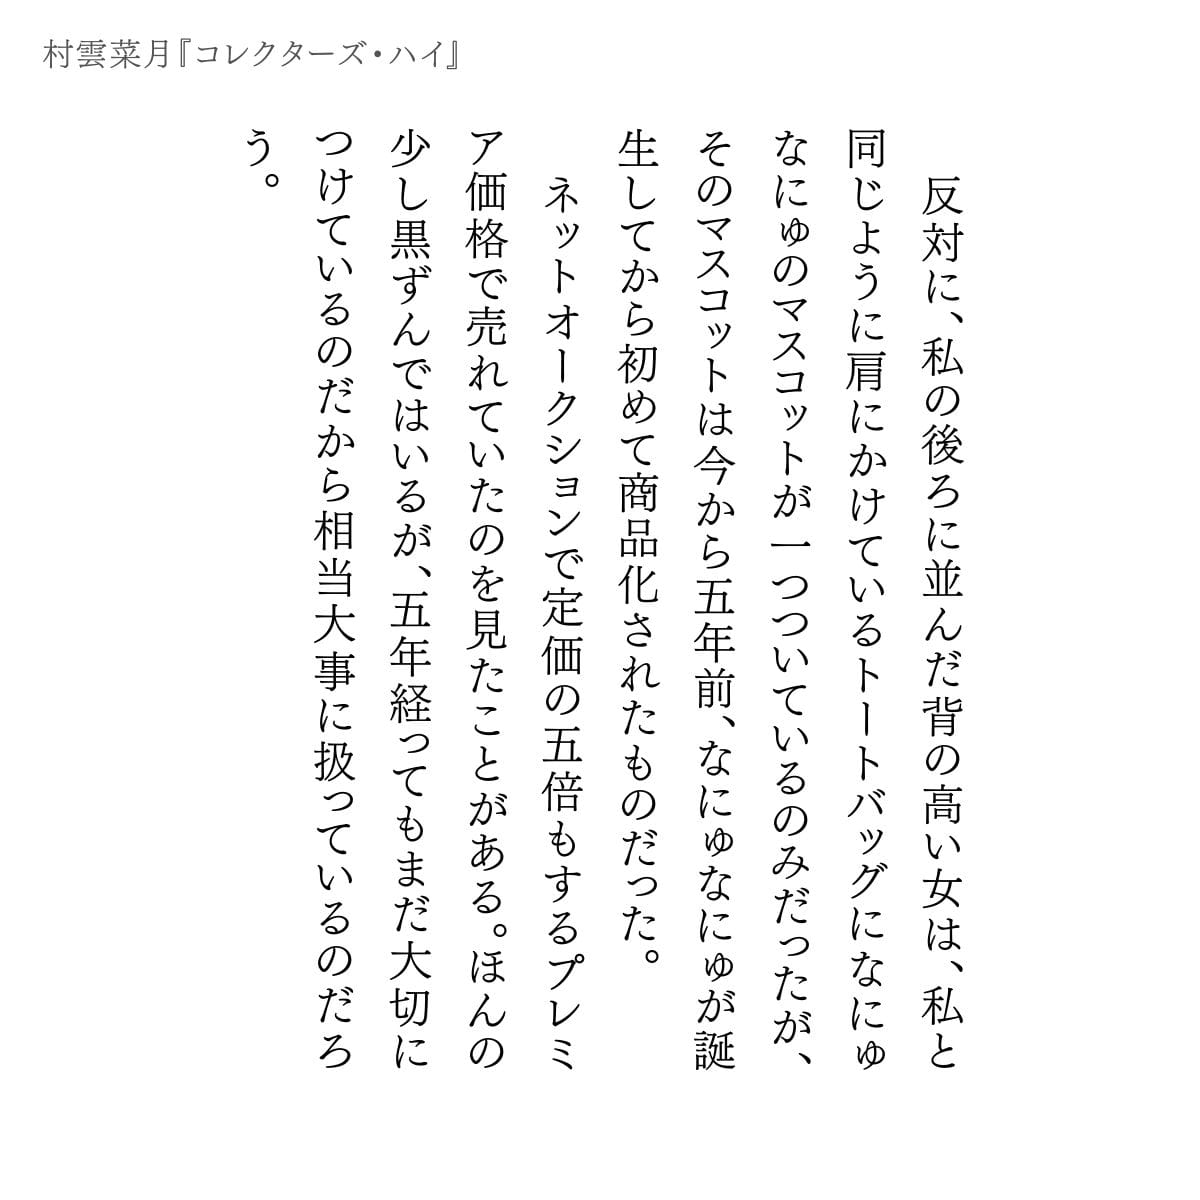 村雲菜月『コレクターズ・ハイ』
　反対に、私の後ろに並んだ背の高い女は、私と
同じように肩にかけているトートバッグになにゅ
なにゅのマスコットが一つついているのみだったが、
そのマスコットは今から五年前、なにゅなにゅが誕
生してから初めて商品化されたものだった。
　ネットオークションで定価の五倍もするプレミ
ア価格で売れていたのを見たことがある。ほんの
少し黒ずんではいるが、五年経ってもまだ大切に
つけているのだから相当大事に扱っているのだろ
う。